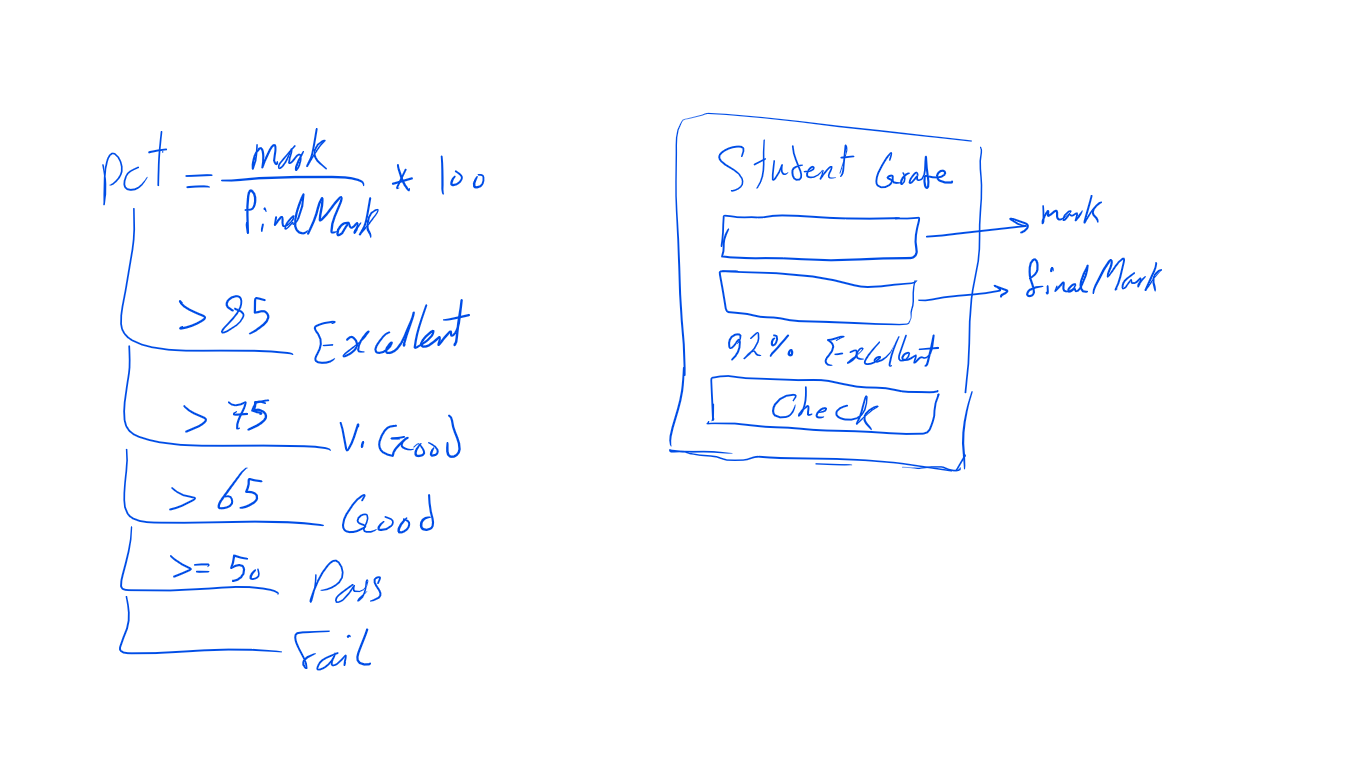 pct = mark / finalMark * 100
> 85 Excellent
> 75 V. Good
> 65 Good
>= 50 Pass
Fail
Student Grade
mark
finalMark
92% Excellent
Check